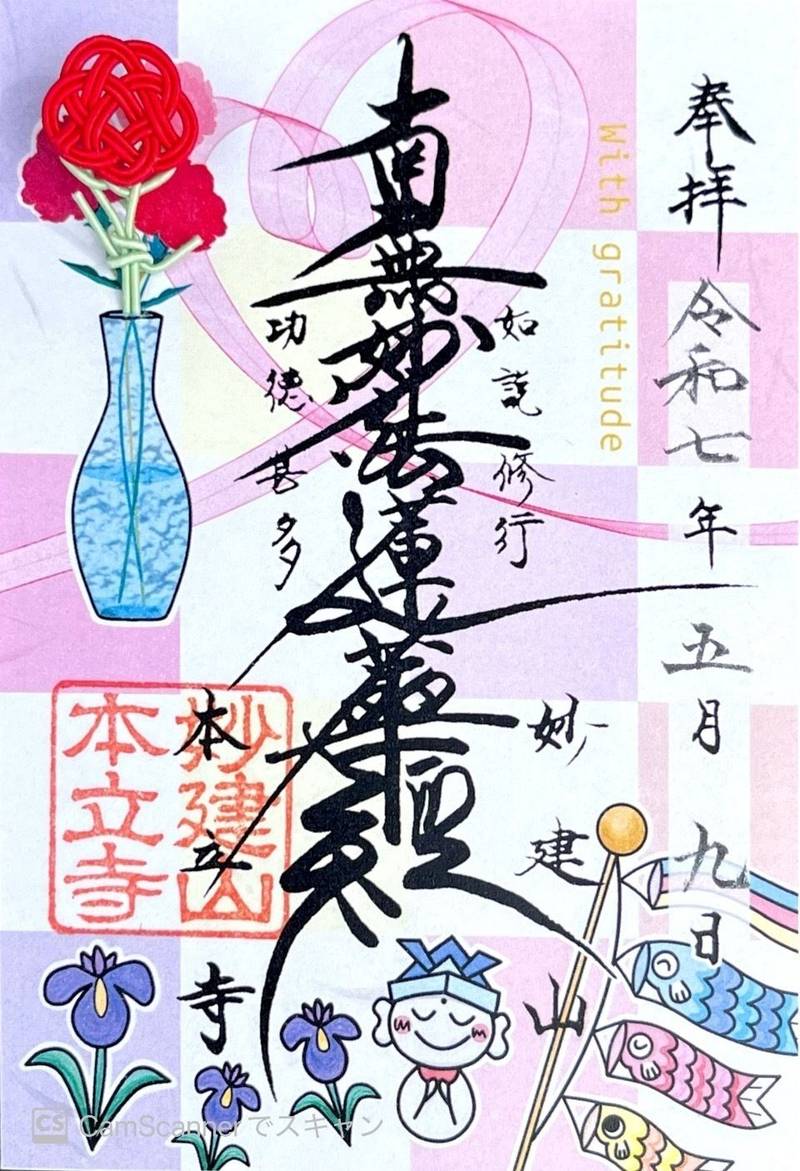 奉拝 令和七年五月九日
With gratitude
如説修行
南無妙法蓮華経
功徳甚多
妙建山
本立寺
妙建山
本立寺
CS CamScannerでスキャン